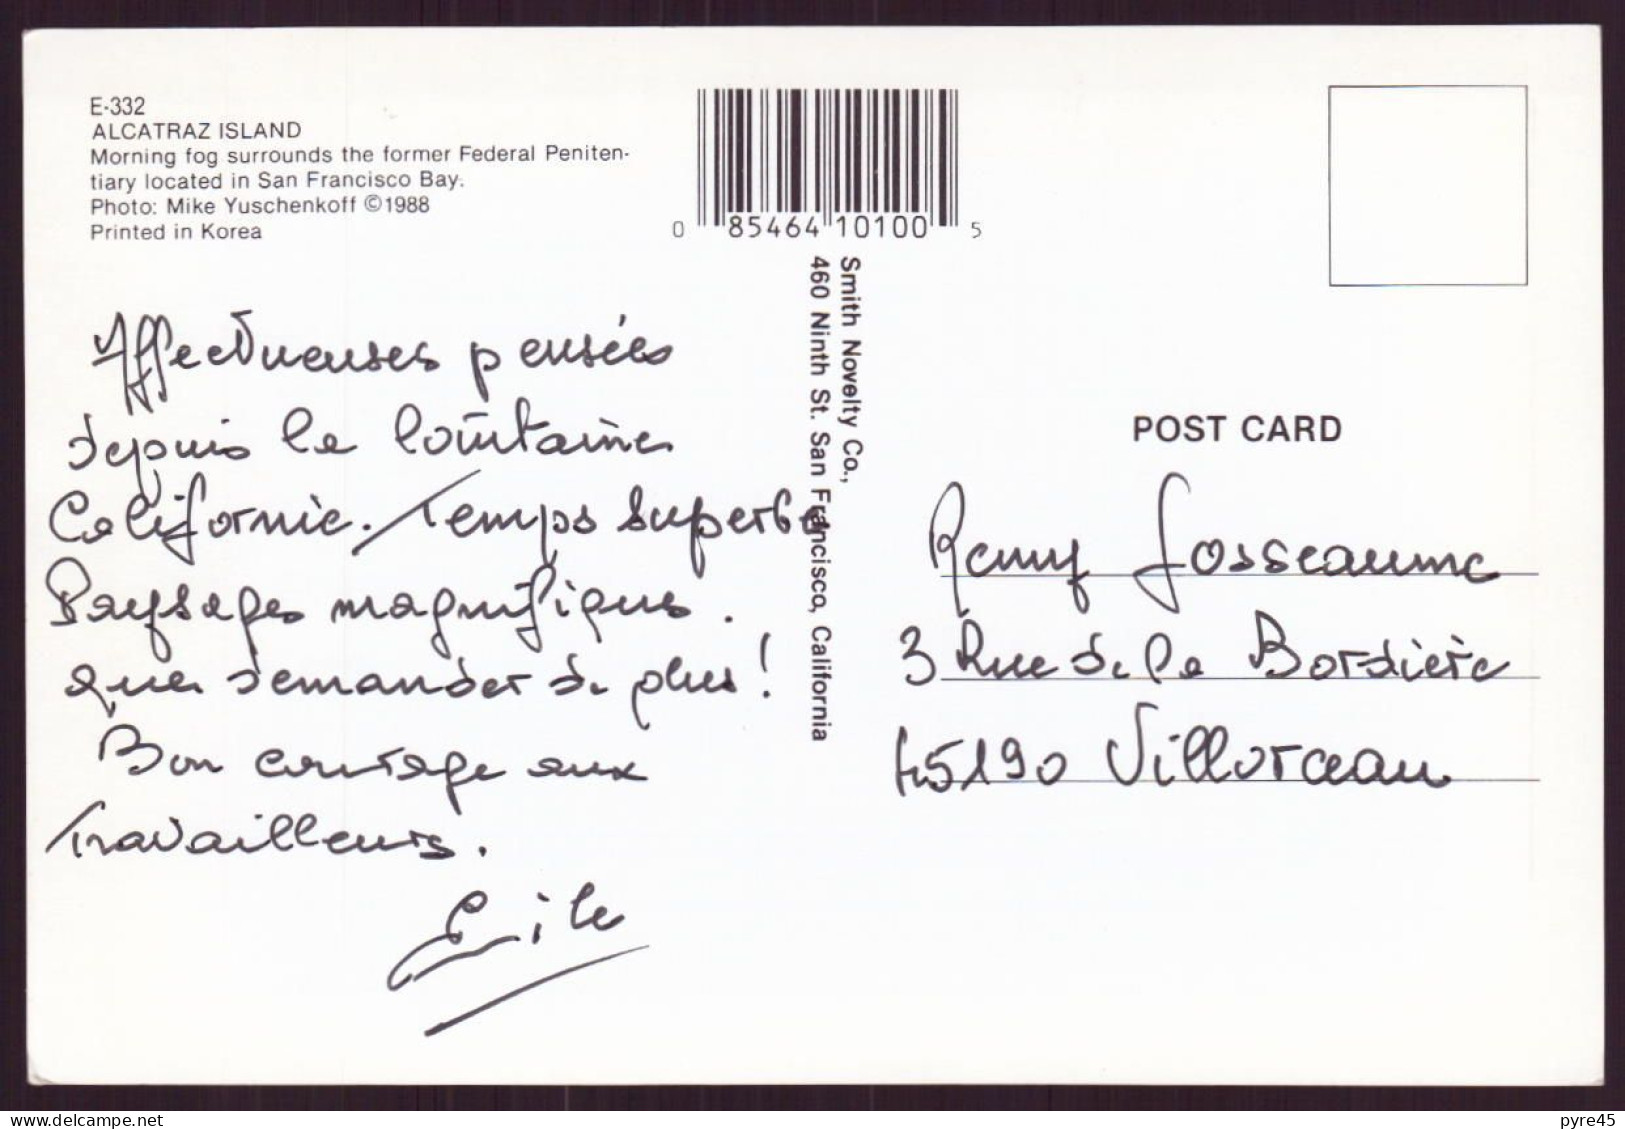 E-332
ALCATRAZ ISLAND
Morning fog surrounds the former Federal Peniten-
tiary located in San Francisco Bay.
Photo: Mike Yuschenkoff ©1988
Printed in Korea
0 85464 10100 5
Smith Novelty Co.,
460 Ninth St. San Francisco, California
Affectueuses pensées
depuis la lointaine
Californie. Temps superbe
Paysages magnifiques.
que demander de plus!
Bon courage aux
Travailleurs.
POST CARD
Remy Josseaume
3 Rue de la Bordière
45190 Villorceau
pyre45